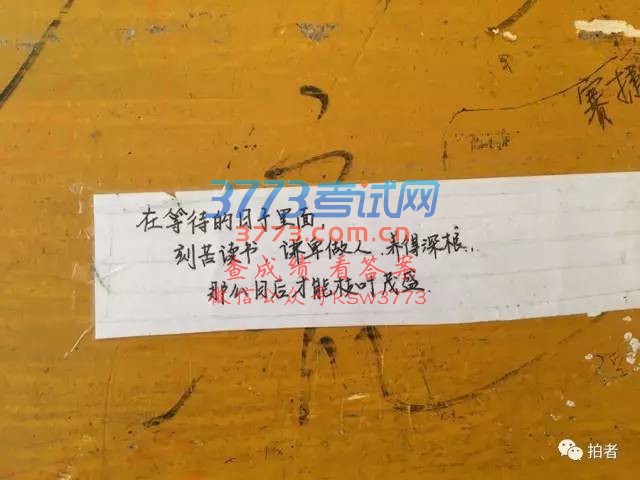 3773考试网
在等待的日子里面
3773.com.cn
刻苦读书 谦卑做人 养得深根,
查成绩 看答案
那么日后才能枝叶茂盛.
微信公众号KSW3773
拍者